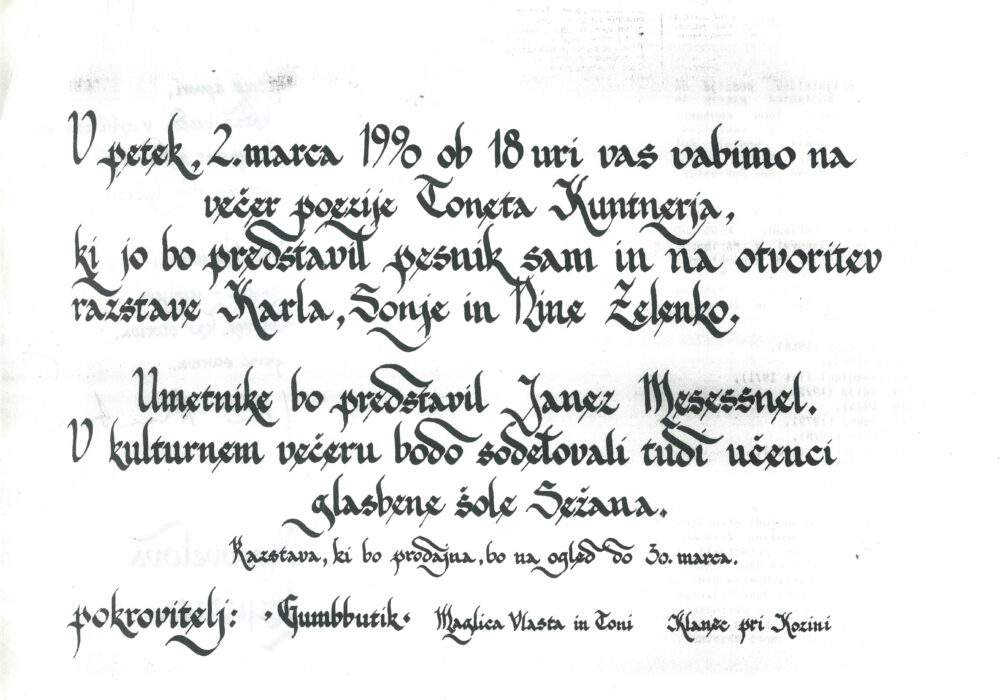 V petek, 2. marca 1990 ob 18 uri vas vabimo na
večer poezije Toneta Kuntnerja,
ki jo bo predstavil pesnik sam in na otvoritev
razstave Karla, Sonje in Nine Zelenko.
Umetnike bo predstavil Janez Mesessnel.
V kulturnem večeru bodo sodelovali tudi učenci
glasbene šole Sežana.
Razstava, ki bo prodajna, bo na ogled do 30. marca.
pokrovitelj: • Gumbbutik • Maglica Vlasta in Toni Klanec pri Kozini